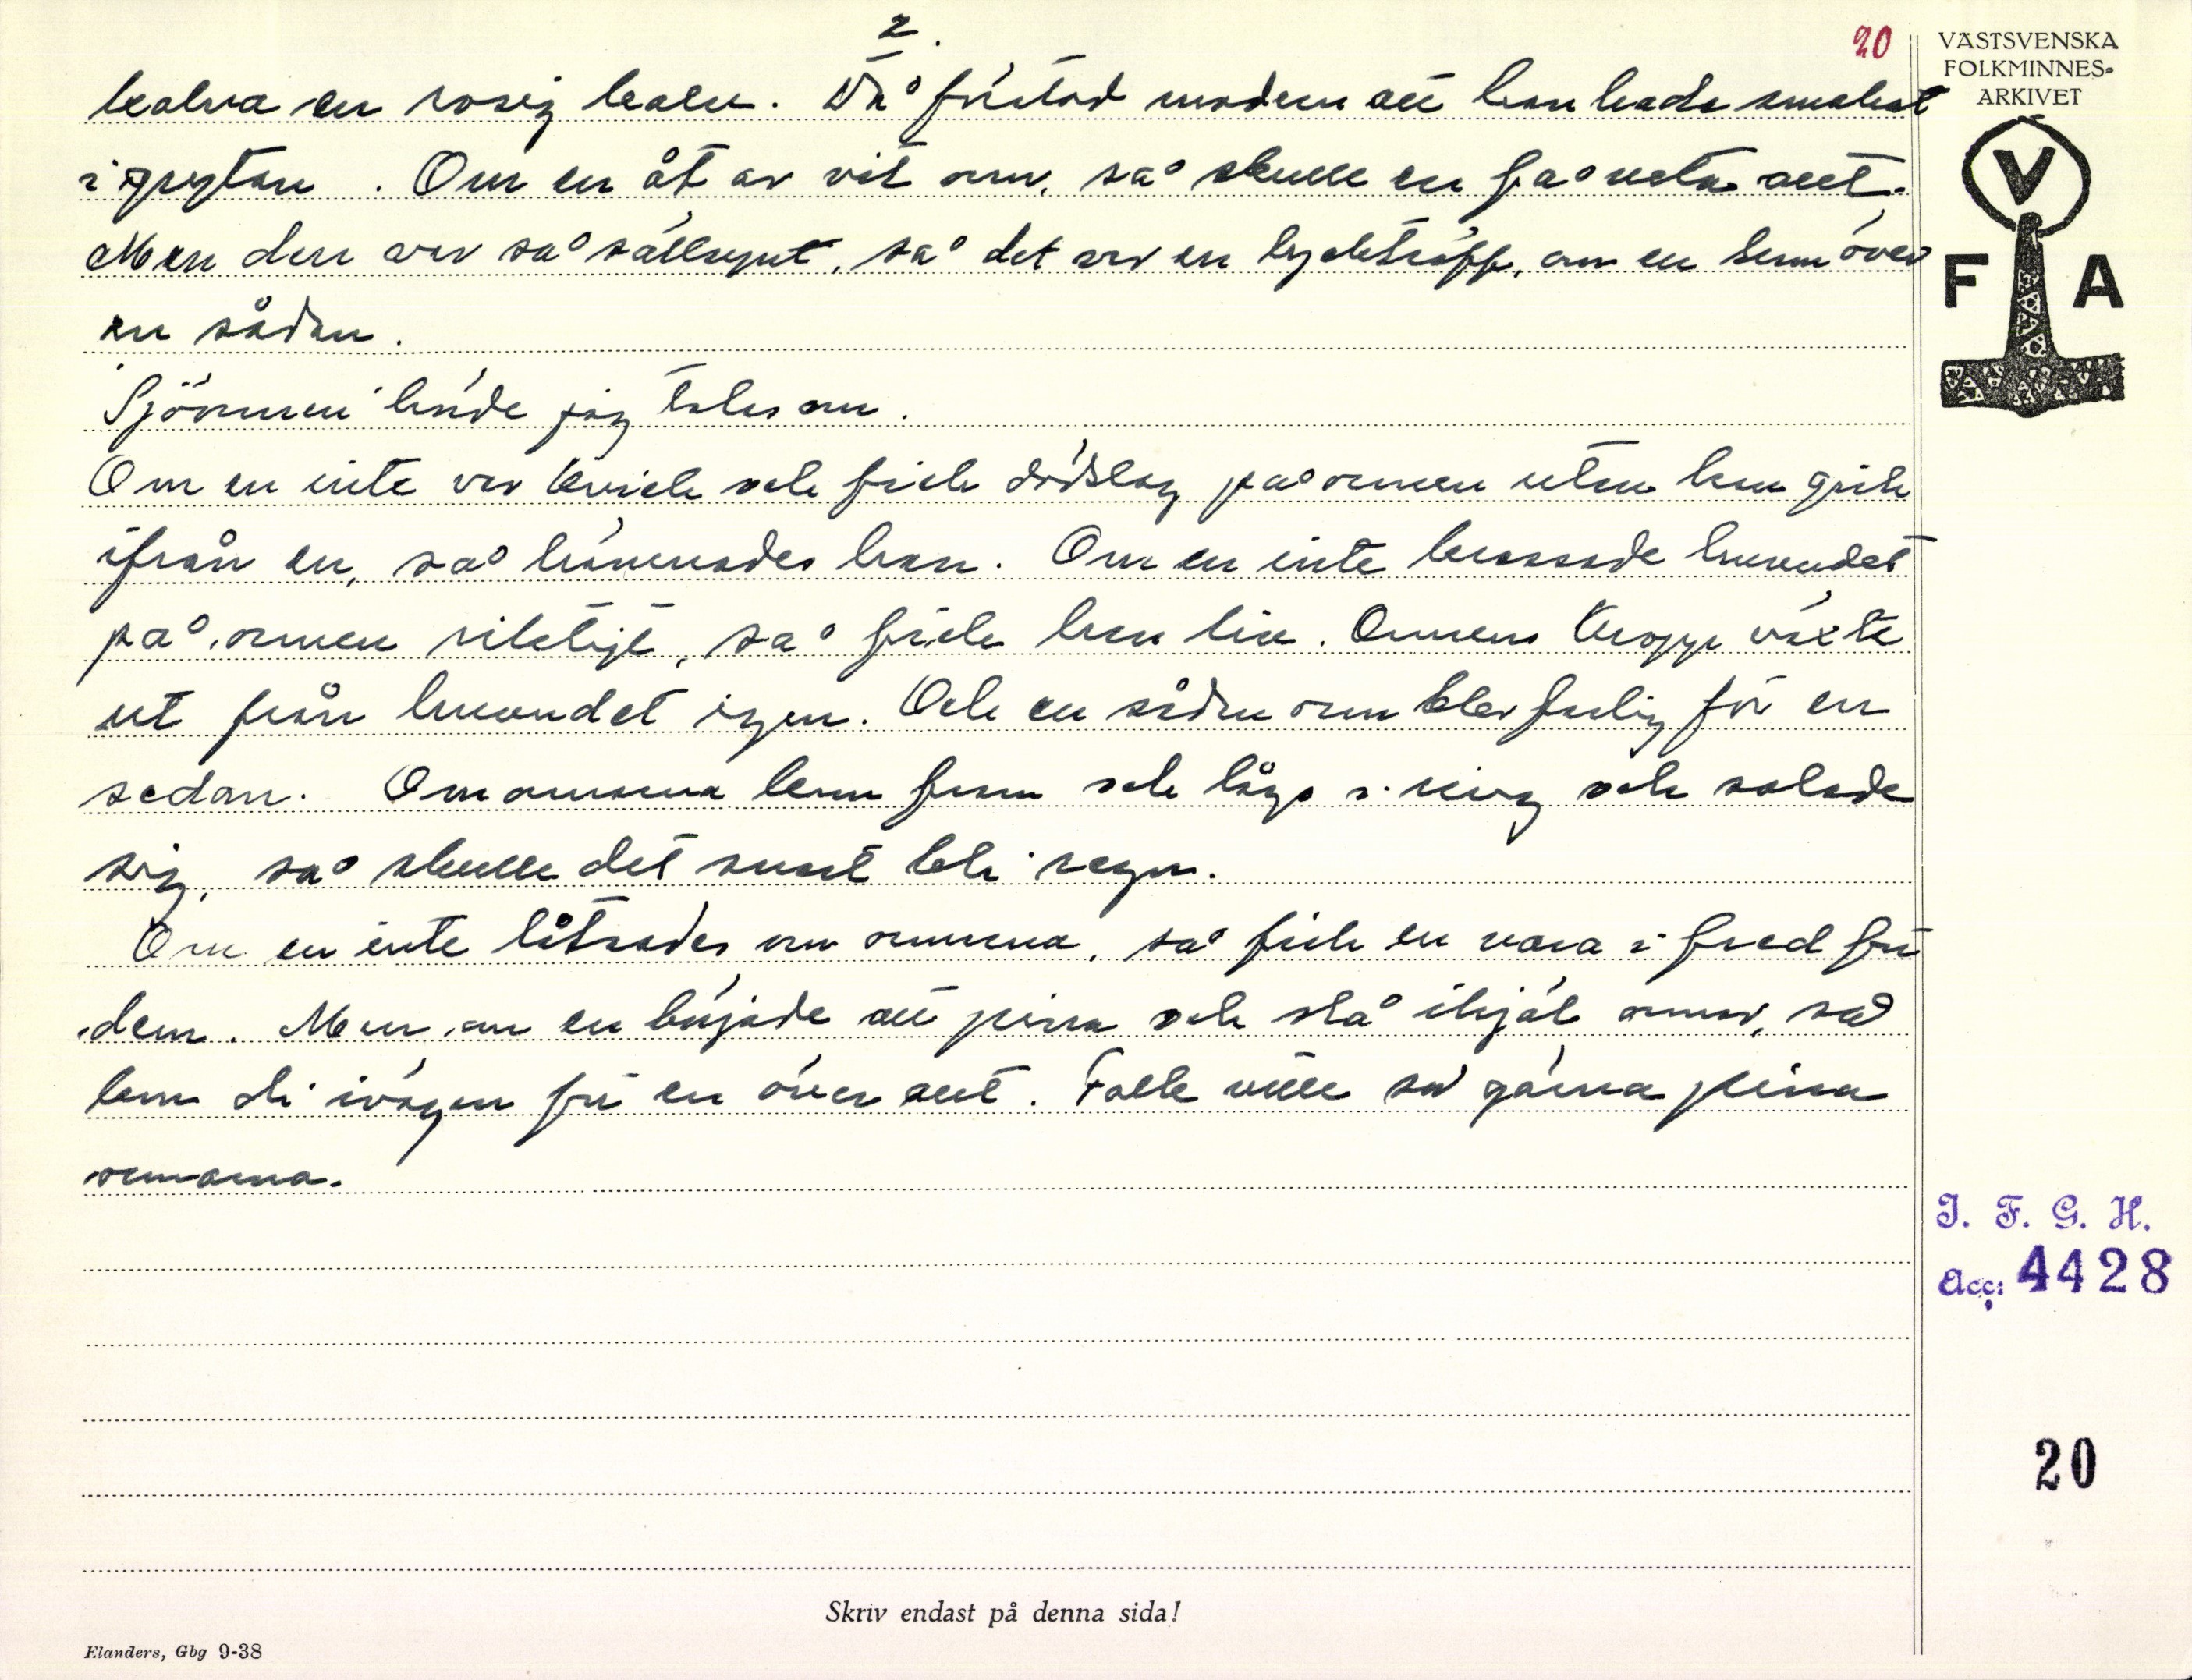 2.
20
kalva en rosig kalv. Då förstod modern att han hade smakat
i grytan. Om en åt av vit orm, så skulle en få veta allt.
Men den var så sällsynt, så det var en lyckträff, om en kom över
en sådan.
Sjörmen hörde jag talas om.
Om en inte var kvick och fick dödslag på ormen utan han gick
ifrån en, så hämnades han. Om en inte krossade huvudet
på ormen riktigt, så fick han liv. Ormens kropp växte
ut från huvudet igen. Och en sådan orm blev farlig för en
sedan. Om ormarna kom fram och låga i ring och solade
sig, så skulle det snart bli regn.
Om en inte låtsades om ormarna, så fick en vara i fred för
dem. Men om en började att pina och slå ihjäl ormar, så
kom di ivägen för en över allt. Folk ville så gärna pina
ormarna.
VÄSTSVENSKA
FOLKMINNES-
ARKIVET
V
F A
I. F. G. H.
Acc: 4428
20
Skriv endast på denna sida!
Elanders, Gbg 9-38